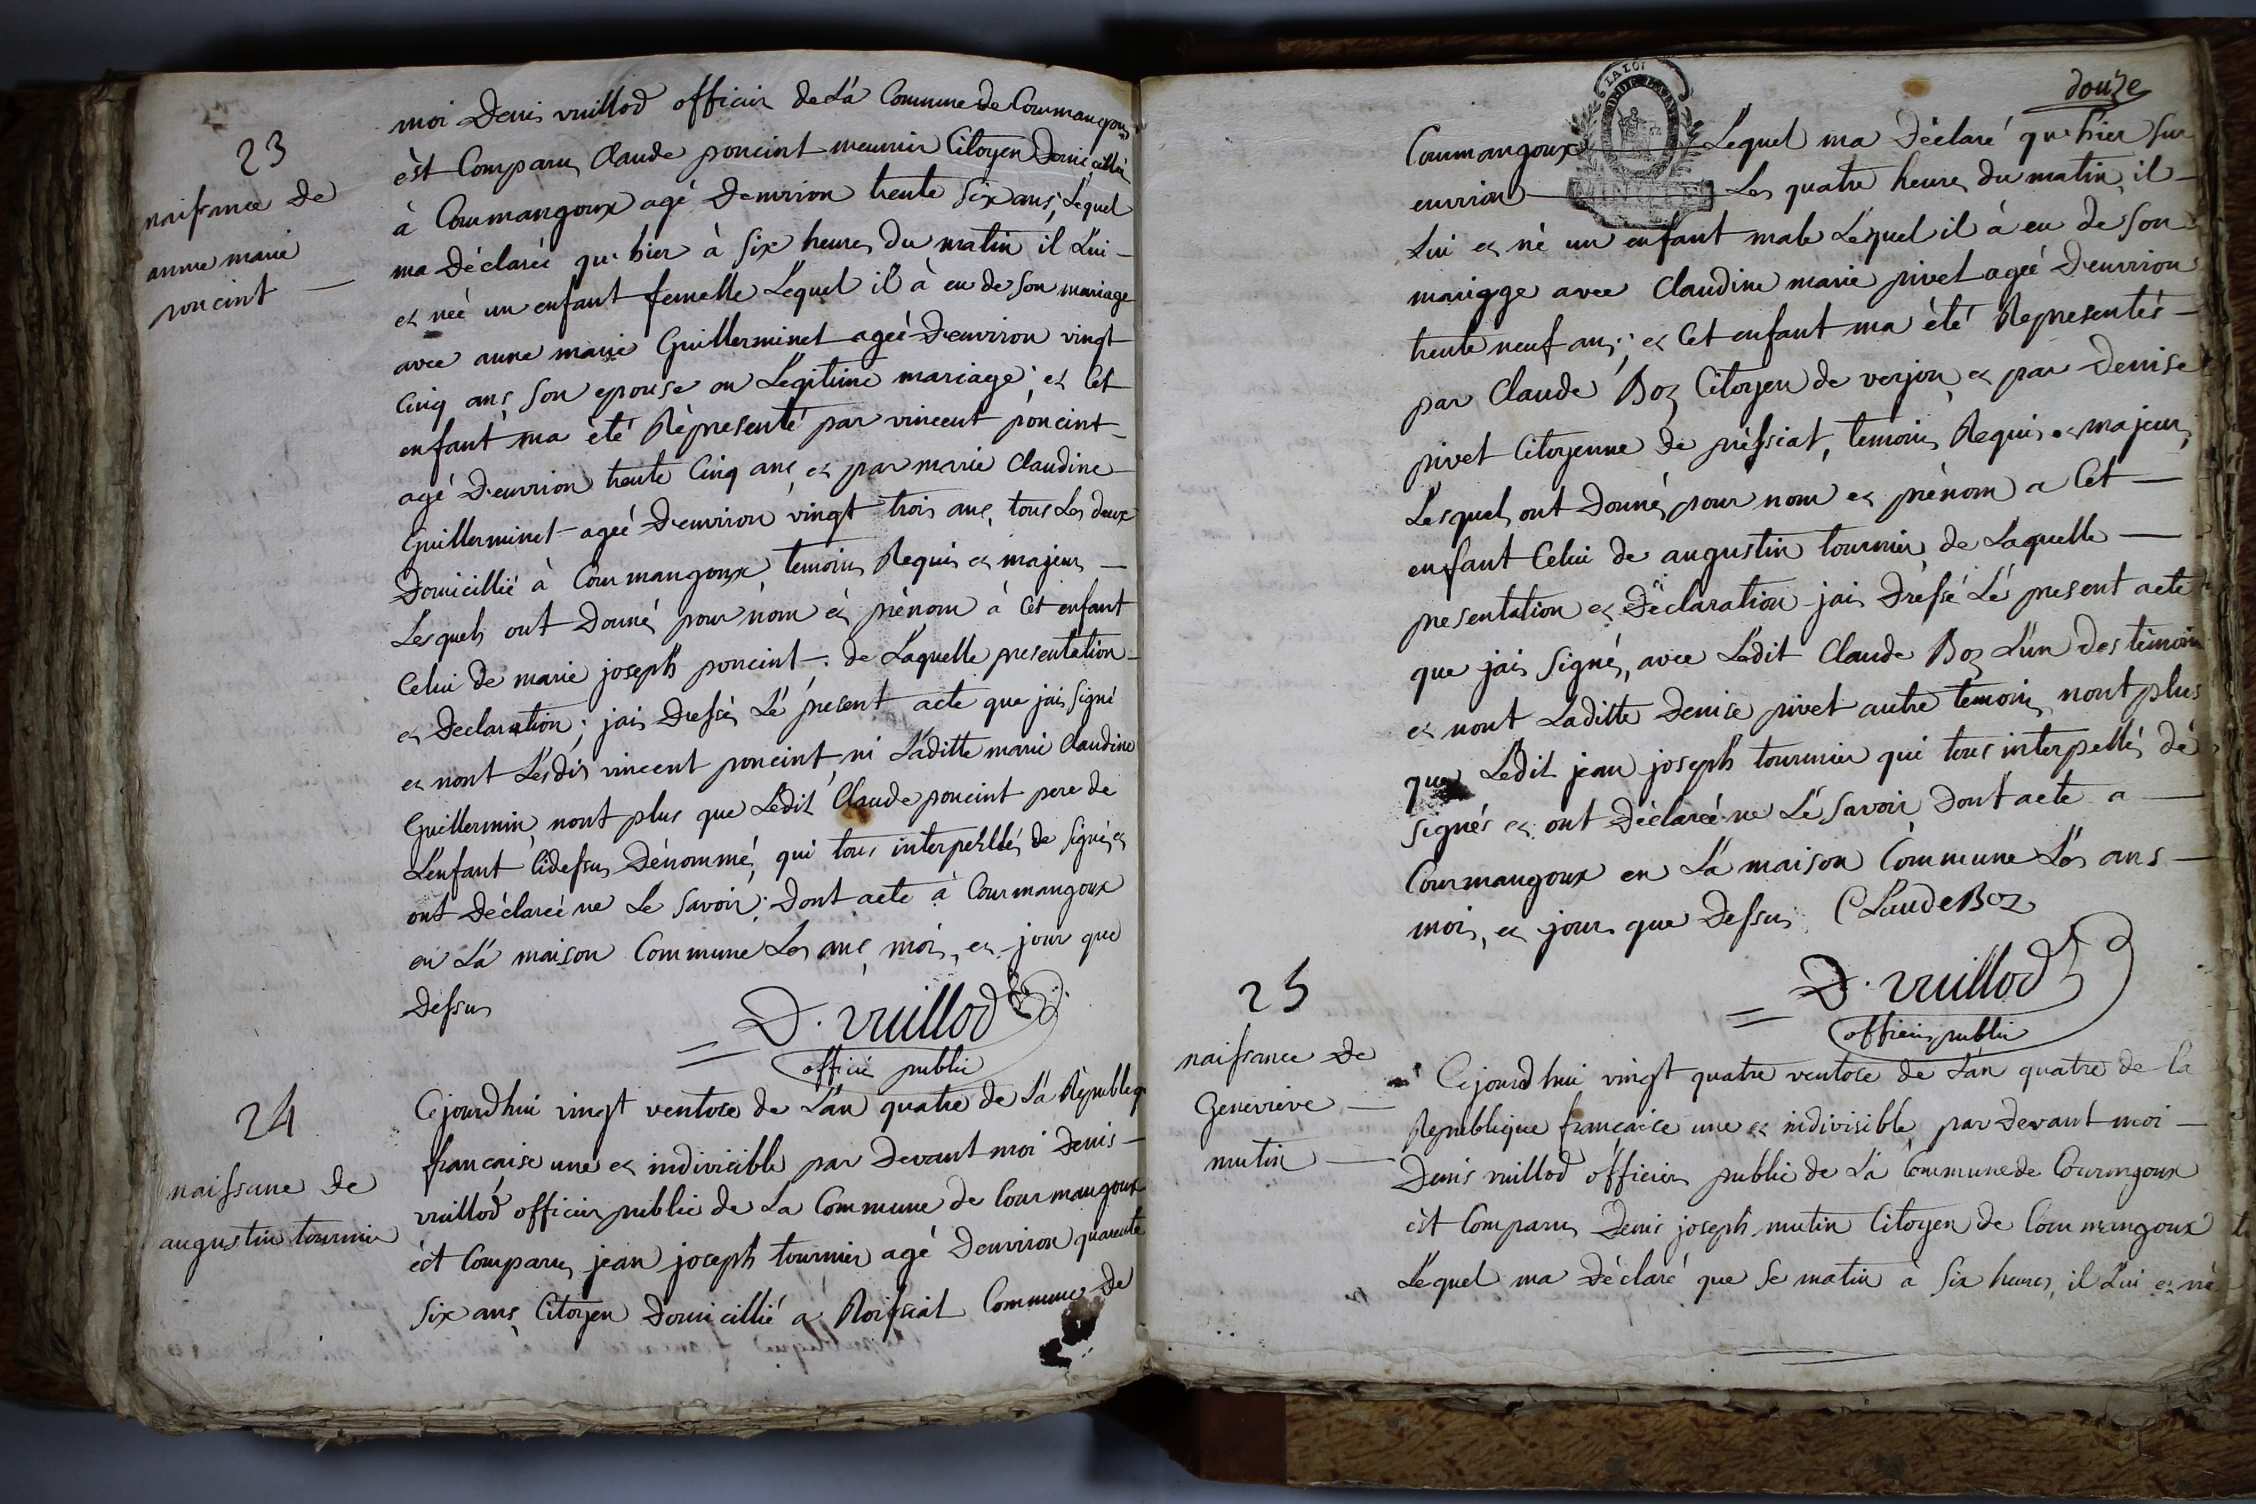 moi Denis vuillod officier de La Commune de Courmangoux
23
èst Comparu, Claude poncint meunier Citoyen Domicillié
naissance de
à Courmangoux agé Denvirion trente six ans, Lequel
anne marie
ma Déclaréé qu'hier à six heures Du matin il Lui-
poncint —
et néé un enfant femelle Lequel il à eu de son mariage
avec anne marie Guillerminet ageé D'environ vingt
Cinq ans, son epouse en Legitime mariage; et Cet
enfant ma èté Réprésenté par vincent poncint-
agé D'envirion trente Cinq ans et par marie Claudine
Guillerminet ageé D'environ vingt trois ans, tous Les deux
Domicillié à Courmangoux, temoins Requis et majeurs —
Lesquels ont Donné, pour nom et prénom à Cet enfant
Celui de marie joseph poncint-. de Laquelle presentation-
et Declaration; jais Dressés Lé présent acte que jais signé
et nont Lesdis vincent poncint, ni Laditte marie Claudine
Guillermin, nont plus que Ledit Claude poncint pere de
L'enfant Cidessus Dénommé, qui tous interpellés de signé et
ont Déclareé ne Le savoir; Dont acte à Courmangoux
en La maison Commune Les ans, mois, et jour que
Dessus
D. vuillod
officié public
24
Cejourdhui vingt ventose de L'an quatre de La Republeq
francaise une et indivisible par Devant moi Denis-
naissane de
vuillod officier public de La Commune de Courmangoux
augustin tournier
èst Comparu, jean joseph tournier agé Denviron quarente
six ans, Citoyen Domicillié a Roissiat Commune de
douze
LA LOI
Courmangoux — Lequel ma Déclaré qu'hier sur
envirion — Les quatre heures du matin, il-
Lui et né un enfant male Lequel il à eu de son
marigge avec Claudine marie pivet ageé D'envirion
trente neuf ans; et Cet enfant ma èté Representés —
par Claude Boz Citoyen de verjon, et par Denise
pivet Citoyenne de préssiat, temoins Requis et majeurs,
Lesquels ont Donnés pour nom et prénom a Cet —
enfant Celui de augustin tournier de Laquelle —
presentation et Déclaration jais Dréssé Lé present acte
que jais signés, avec Ledit Claude Boz L'un des témoins
et nont Laditte Denise pivet autre temoin, nont plus
que Ledit jean joseph tournier qui tous interpellés dé
signés et ont Déclareé ne Lé savoir Dont acte a —
Courmangoux en La maison Commune Lés ans —
mois, et jours que Dessus CLaude Boz
D. vuillod
officier public
25
naissance de
Cejourdhui vingt quatre ventose de L'an quatre de la
Genevieve —
Republique francaise une et indivisible, par devant moi —
mutin —
Denis vuillod officier public de La Commune de Courmgoux
èst Comparu, Denis joseph mutin Citoyen de Courmangoux
Lequel ma Déclaré que se matin à six heures, il Lui et né